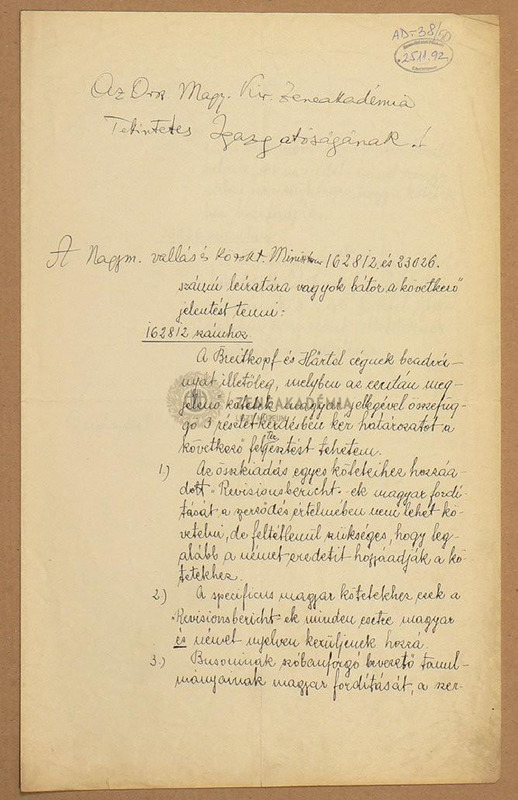 AD-38/
25.11.92
Az Orsz Magy. Kir. Zeneakadémia
Tekintetes Igazgatóságának!
A Nagym. vallás és közokt. Minisztérium 162812 és 23026.
számú leiratára vagyok bátor a következő
jelentést tenni:
162812 számhoz
A Breitkopf és Härtel cégnek beadvá-
nyát illetőleg, melyben az ezután meg-
jelenő kötetek magyar jellegével összefüg-
gő 3 részletkérdésben kér határozatot a
következő felterjesztést tehetem.
1.) Az összkiadás egyes köteteihez hozzáa-
dott "Revisionsbericht"-ek magyar fordí-
tását a szerződés értelmében nem lehet kö-
vetelni, de feltétlenül szükséges, hogy leg-
alább a német eredetit hozzáadják a kö-
tetekhez.
2.) A specificus magyar kötetekhez ezek a
"Revisionsbericht"-ek minden esetre magyar
és német nyelven kerüljenek hozzá.
3.) Busoninak szóbanforgó bevezető tanul-
mányainak magyar fordítását, a szer-
ZENEAKADÉMIA